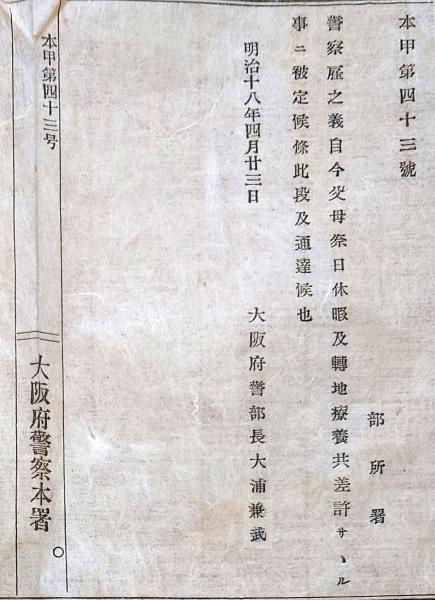 本甲第四十三號
部所署
警察雇之義自今父母祭日休暇及轉地療養共差許サヽル
事ニ被定候條此段及通達候也
明治十八年四月廿三日
大阪府警部長大浦兼武
本甲第四十三号
大阪府警察本署